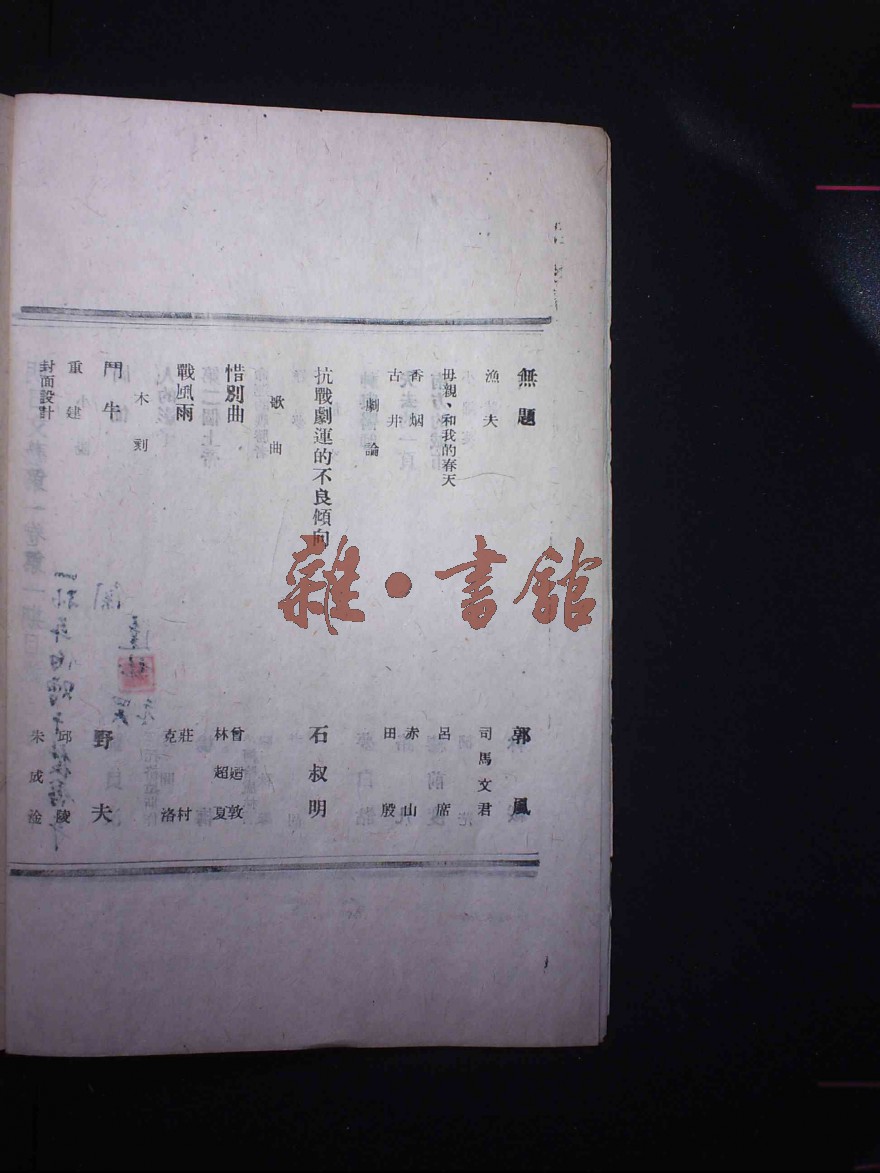 無題 郭風
漁夫 司馬文君
毋親、和我的春天 呂席
香烟 赤山
古井 田殷
劇論
抗戰劇運的不良傾向 石叔明
歌曲
惜別曲 曾迺敦 林超夏
戰風雨 莊村 克洛
木刻
鬥牛 野夫
重建 邱陵
封面設計 朱成淦
雜·書舘